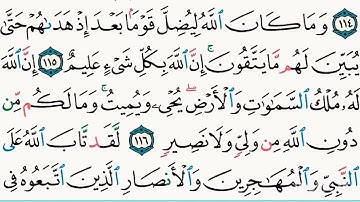 ۝١١٤ وَمَا كَانَ ٱللَّهُ لِيُضِلَّ قَوْمَۢا بَعْدَ إِذْ هَدَىٰهُمْ حَتَّىٰ
يُبَيِّنَ لَهُم مَّا يَتَّقُونَۚ إِنَّ ٱللَّهَ بِكُلِّ شَىْءٍ عَلِيمٌ ۝١١٥ إِنَّ ٱللَّهَ
لَهُۥ مُلْكُ ٱلسَّمَٰوَٰتِ وَٱلْأَرْضِۖ يُحْىِۦ وَيُمِيتُۚ وَمَا لَكُم مِّن
دُونِ ٱللَّهِ مِن وَلِىٍّ وَلَا نَصِيرٍ ۝١١٦ لَّقَد تَّابَ ٱللَّهُ عَلَى
ٱلنَّبِىِّ وَٱلْمُهَٰجِرِينَ وَٱلْأَنصَارِ ٱلَّذِينَ ٱتَّبَعُوهُ فِى